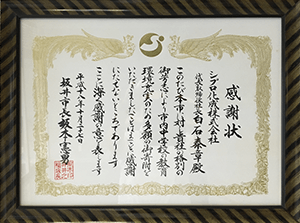 感謝状
シプロ化成株式会社
代表取締役社長 白石泰章殿
このたび本市に対し貴社の格別の
御芳志により市内中学校の教育
環境充実のため多額の御寄附を
いただきましたことはまことに感謝
にたえないところであります
ここに深く感謝の意を表します
平成十八年十月二十六日
坂井市長 坂本憲男